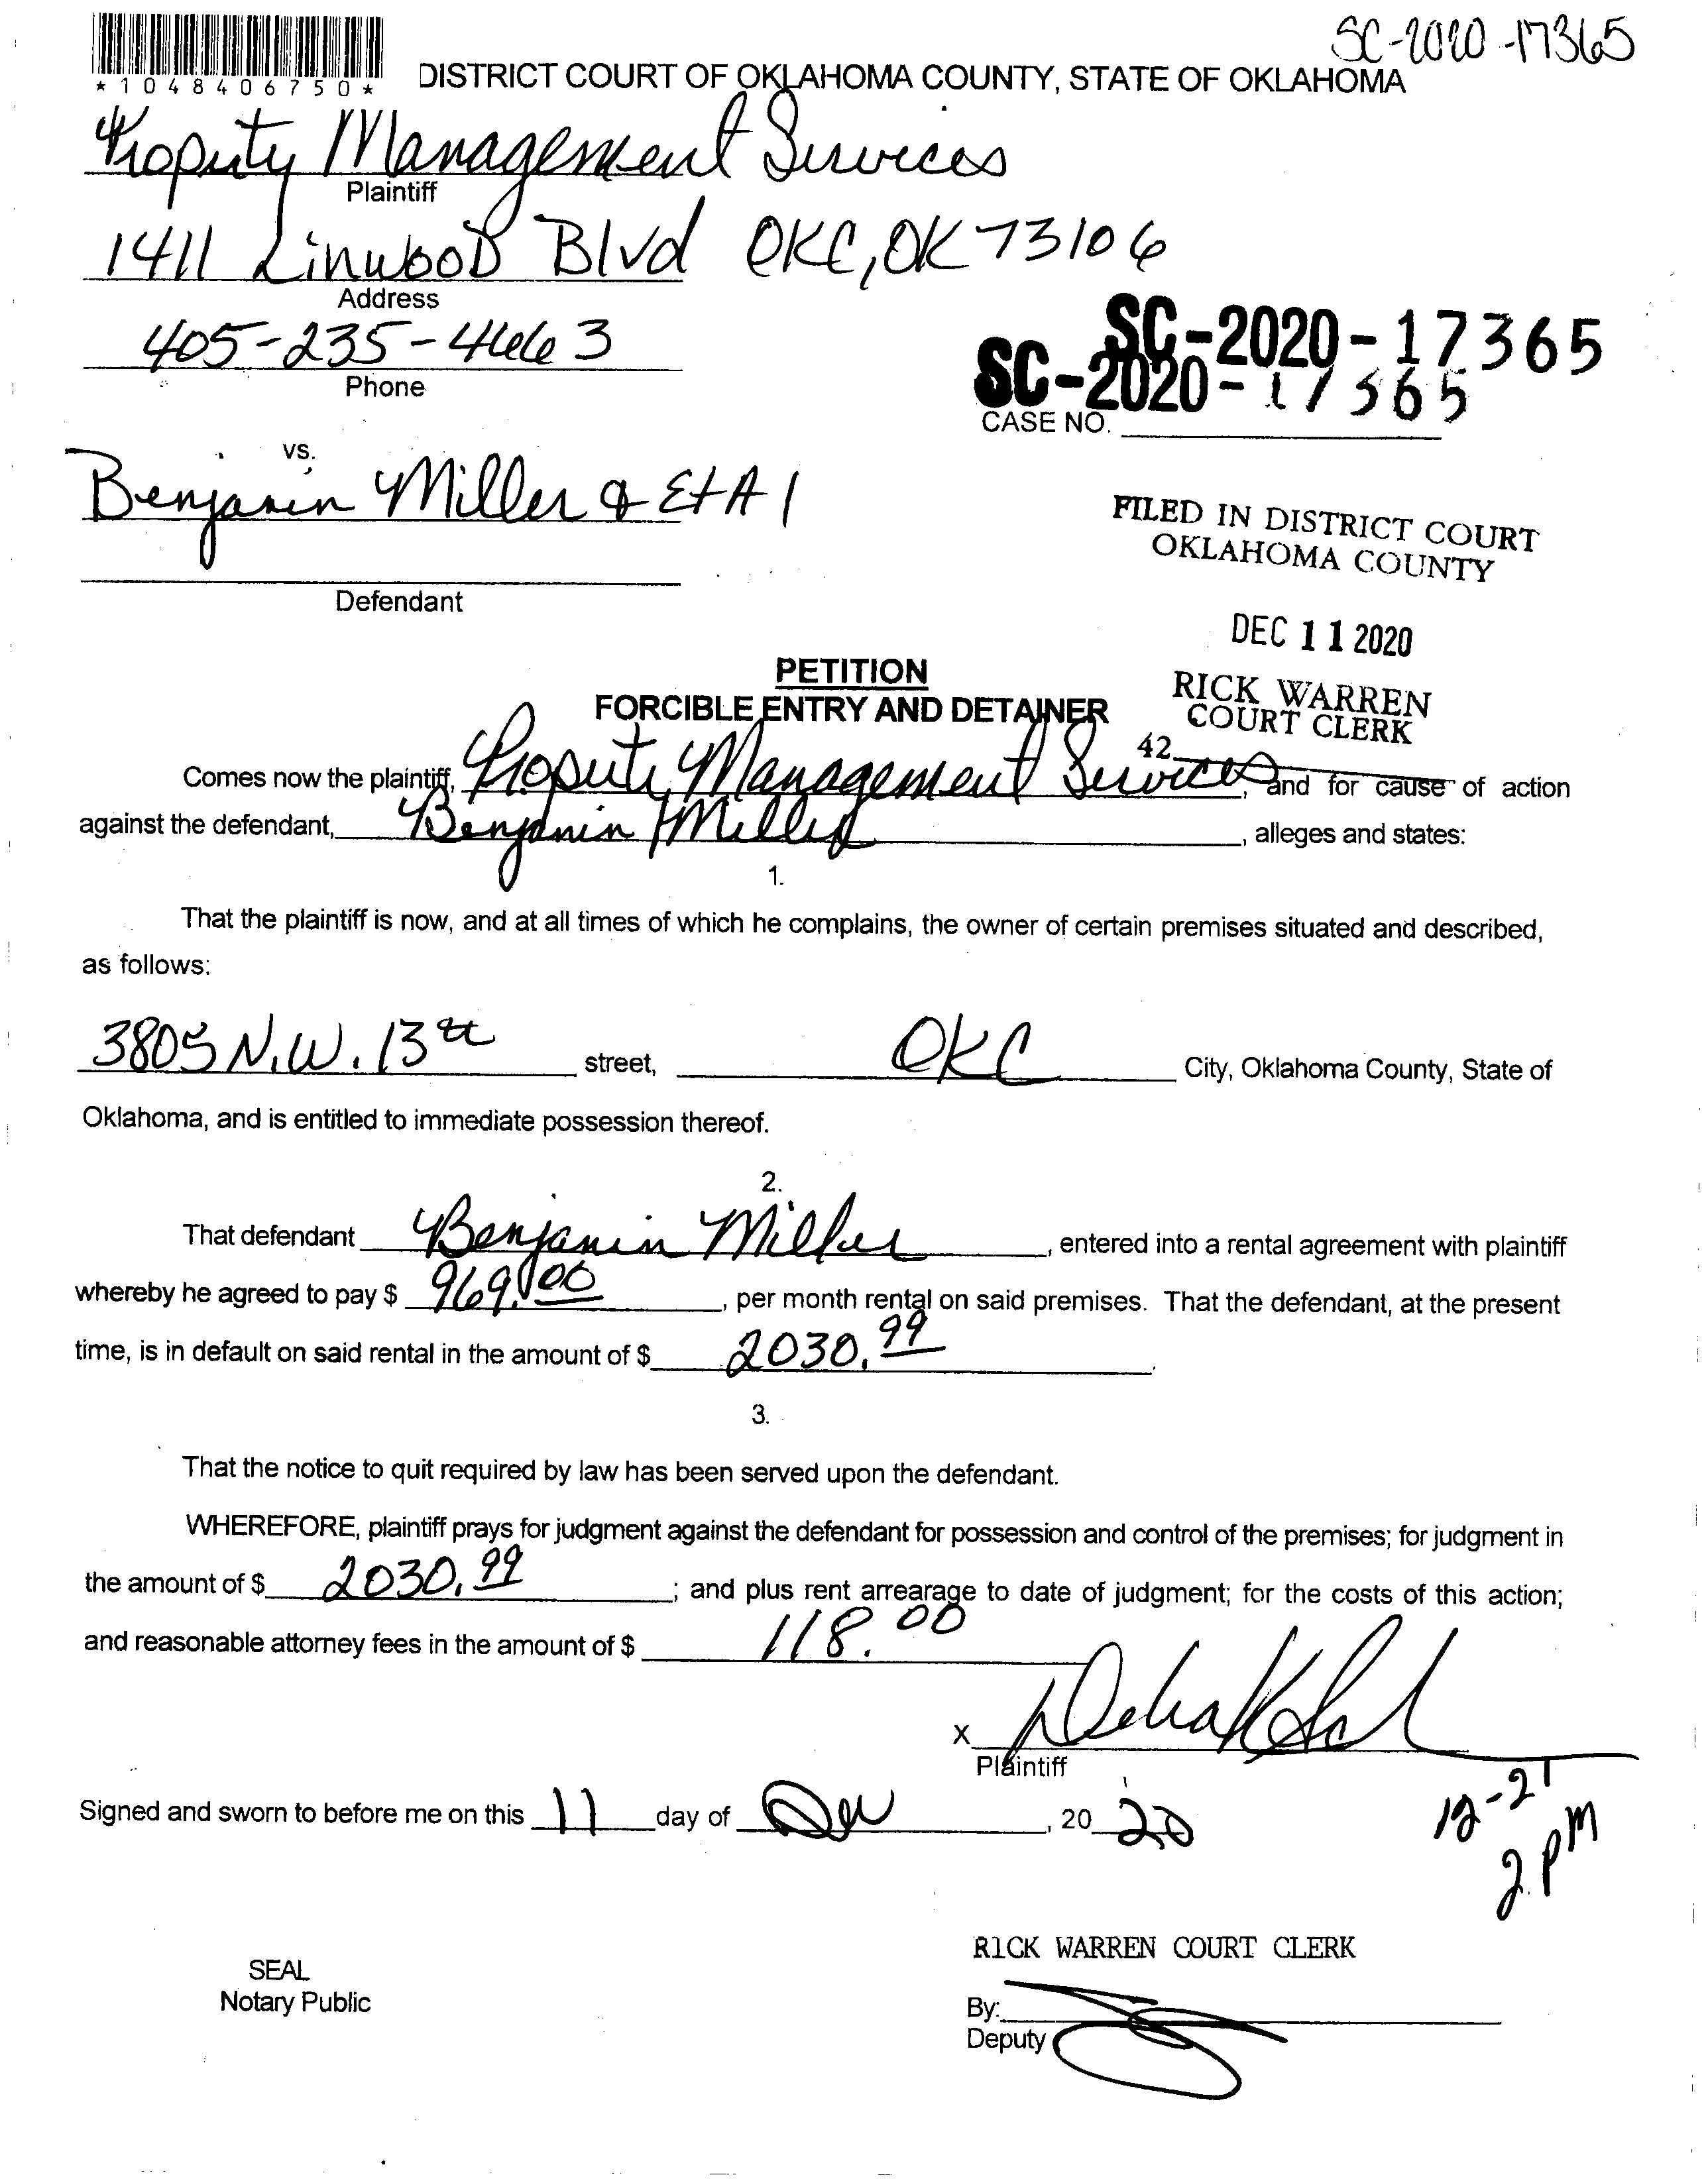 SC-2020-17365
*1048406750*
DISTRICT COURT OF OKLAHOMA COUNTY, STATE OF OKLAHOMA
Property Management Services
Plaintiff
1411 LinwooD Blvd OKC, OK 73106
Address
405-235-4663
Phone
SC-2020-17365
SC-2020-17365
CASE NO.
vs.
Benjamin Miller & EtAl
Defendant
FILED IN DISTRICT COURT
OKLAHOMA COUNTY
DEC 11 2020
RICK WARREN
COURT CLERK
42
PETITION
FORCIBLE ENTRY AND DETAINER
Comes now the plaintiff, Property Management Services, and for cause of action
against the defendant, Benjamin Miller, alleges and states:
1.
That the plaintiff is now, and at all times of which he complains, the owner of certain premises situated and described,
as follows:
3805 N.W. 13th street, OKC City, Oklahoma County, State of
Oklahoma, and is entitled to immediate possession thereof.
2.
That defendant Benjamin Miller, entered into a rental agreement with plaintiff
whereby he agreed to pay $ 969.00, per month rental on said premises. That the defendant, at the present
time, is in default on said rental in the amount of $ 2030.99.
3.
That the notice to quit required by law has been served upon the defendant.
WHEREFORE, plaintiff prays for judgment against the defendant for possession and control of the premises; for judgment in
the amount of $ 2030.99; and plus rent arrearage to date of judgment; for the costs of this action;
and reasonable attorney fees in the amount of $ 118.00
X
Plaintiff
Signed and sworn to before me on this 11 day of Dec, 20 20
12-21
2 PM
RICK WARREN COURT CLERK
SEAL
Notary Public
By:
Deputy